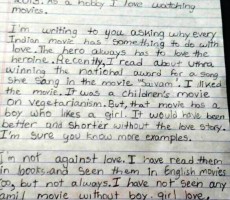 2015. As a hobby I love watching
movies.
I'm writing to you asking why every
Indian movie has something to do with
love. The hero always has to love the
heroine. Recently, I read about Uthra
winning the national award for a song
she sang in the movie 'Saivam'. I liked
the movie. It was a children's movie
on vegetarianism. But, that movie has a
boy who likes a girl. It would have been
better and shorter without the love story.
I'm sure you know more examples.
I'm not against love. I have read them
in books and seen them in English movies
too, but not always. I have not seen any
amil movie without boy, girl love.